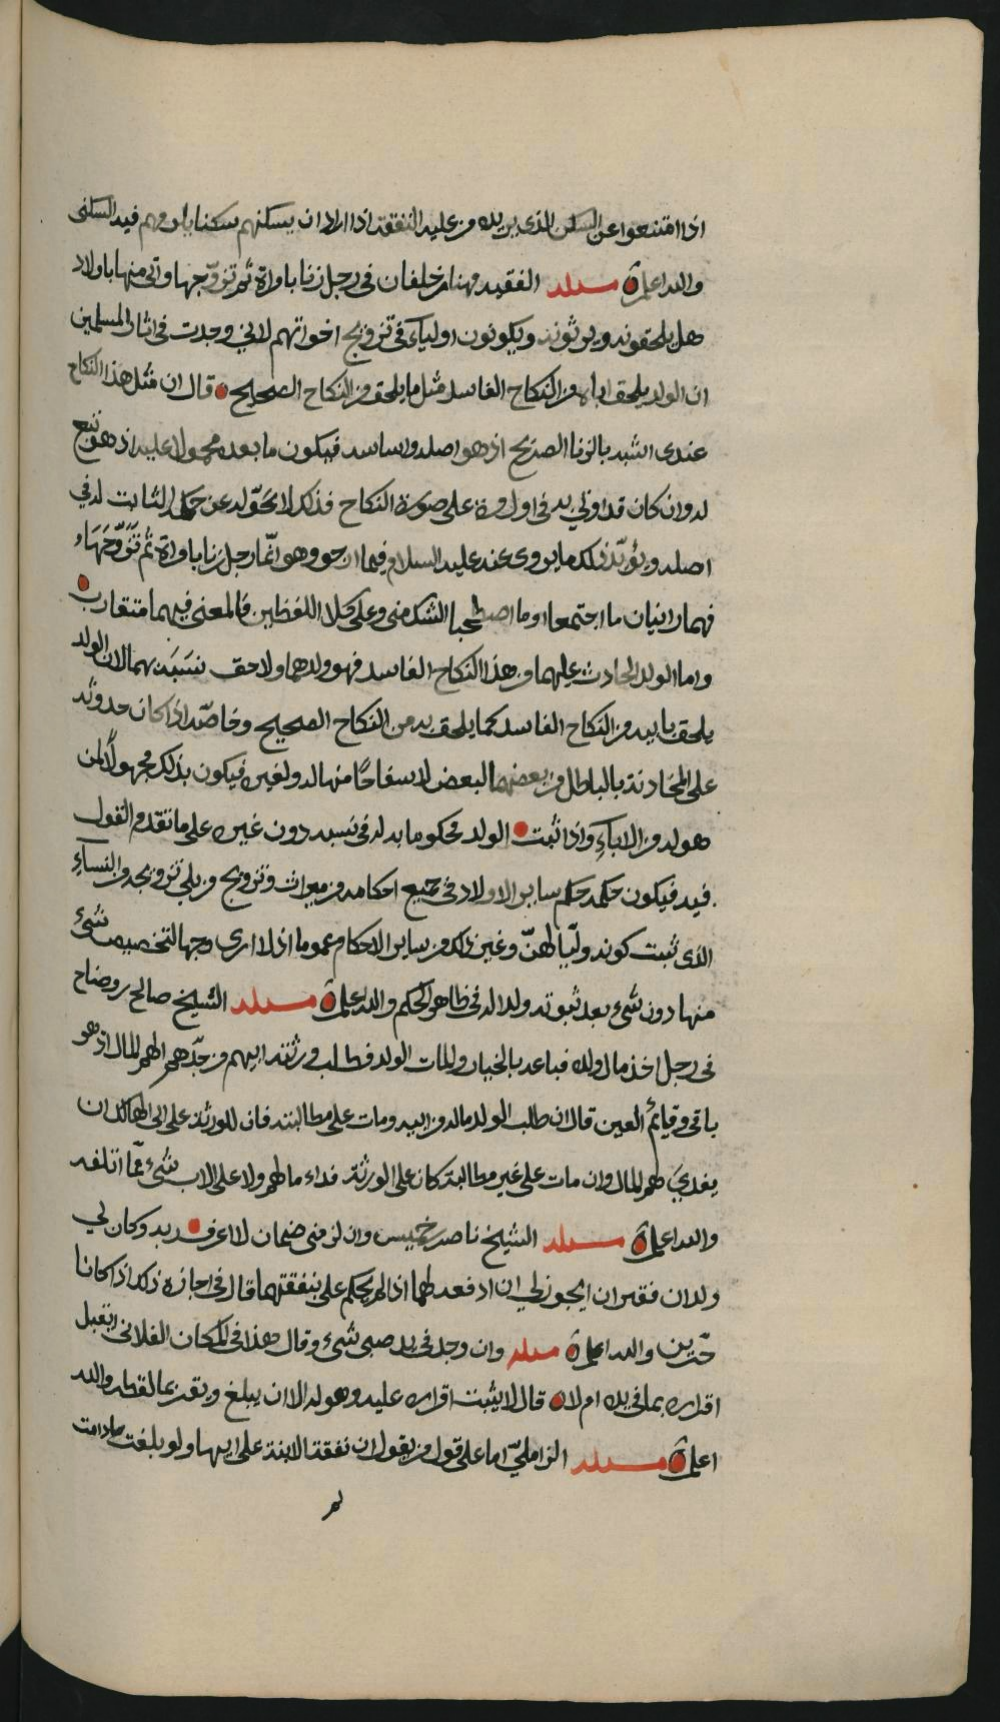 اذا امتنعوا عن السكن الذي يريده من عليه النفقة اذا اراد ان يسكنهم سكنا يلزمهم فيه السكنى
والله اعلم مسئلة الفقيه مهنا بن خلفان في رجل زنا بامراة ثم تزوّجها واتى منها باولاد
هل يلحقونه ويرثونه ويكونون اولياء في تزويج اخواتهم لاني وجدت في اثار المسلمين
ان الولد يلحق اباه من النكاح الفاسد مثل ما يلحق من النكاح الصحيح قال ان مثل هذا النكاح
عندي اشبه بالزنا الصريح اذ هو اصله واساسه فيكون ما بعده محمولا عليه اذ هو تبع
له وان كان قد اوتي به في اول مرة على صورة النكاح فذلك لا يحوّله عن حكمه الثابت له في
اصله ويؤيّد ذلك ما يروى عنه عليه السلام فيما ارجو وهو ايّما رجل زنا بامراة ثم تزوّجها
فهما زانيان ما اجتمعا او ما اصطحبا الشك مني وعلى كلا اللفظين فالمعنى فيهما متقارب
واما الولد الحادث عليهما من هذا النكاح الفاسد فهو ولدهما ولاحق نسبه بهما لان الولد
يلحق بابيه من النكاح الفاسد كما يلحق به من النكاح الصحيح وخاصّة اذا كان حدوثه
على المخادنة بالباطل من بعضهما البعض لا سفاحًا منها له ولغيره فيكون بذلك مجهولًا لمن
هو له من الاباءِ واذا ثبت الولد محكوما به له في نسبه دون غيره على ما تقدم القول
فيه فيكون حكمه حكم ساير الاولاد في جميع احكامه من ميراث وتزويج من يلي تزويجه من النساءِ
الذي ثبت كونه وليّا لهنّ وغير ذلك من ساير الاحكام عموما اذ لا ارى وجها لتخصيص شيء
منها دون شيء بعد ثبوته ولدا له في ظاهر الحكم والله اعلم مسئلة الشيخ صالح بن وضاح
في رجل اخذ مال ولده فباعه بالخيار ومات الولد فطلب ورثته ابيهم من جدّهم الهم المال اذ هو
باقي وقيائم العين قال ان طلب الولد ماله من ابيه ومات على مطالبته فان للورثة على الهالك ان
يفدي لهم المال وان مات على غير مطالبة كان على الورثة فداء ما لهم ولا على الاب شيء ممّا اتلفه
والله اعلم مسئلة الشيخ ناصر بن خميس وان لزمني ضمان لا اعرف ربه وكان لي
ولدان فقيران ايجوز لي ان ادفعه لهما اذا لم يحكم علي بنفقتهما قال في اجازة ذلك اذا كانا
حرّين والله اعلم مسئلة وان وجد في يد صبي شيء وقال هذا في المكان الفلاني ايقبل
اقراره بما في يده ام لا قال لا يثبت اقراره عليه وهو له الا ان يبلغ ويقر بما القطه والله
اعلم مسئلة الزاملي اما على قول من يقول ان نفقة الابنة على ابيها ولو بلغت مادامت
لم